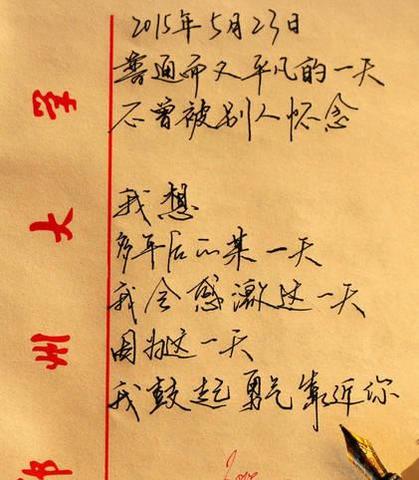 2015年5月23日
普通而又平凡的一天
不曾被别人怀念
我想
多年后的某一天
我会感激这一天
因为这一天
我鼓起勇气靠近你
Love
学
大
州